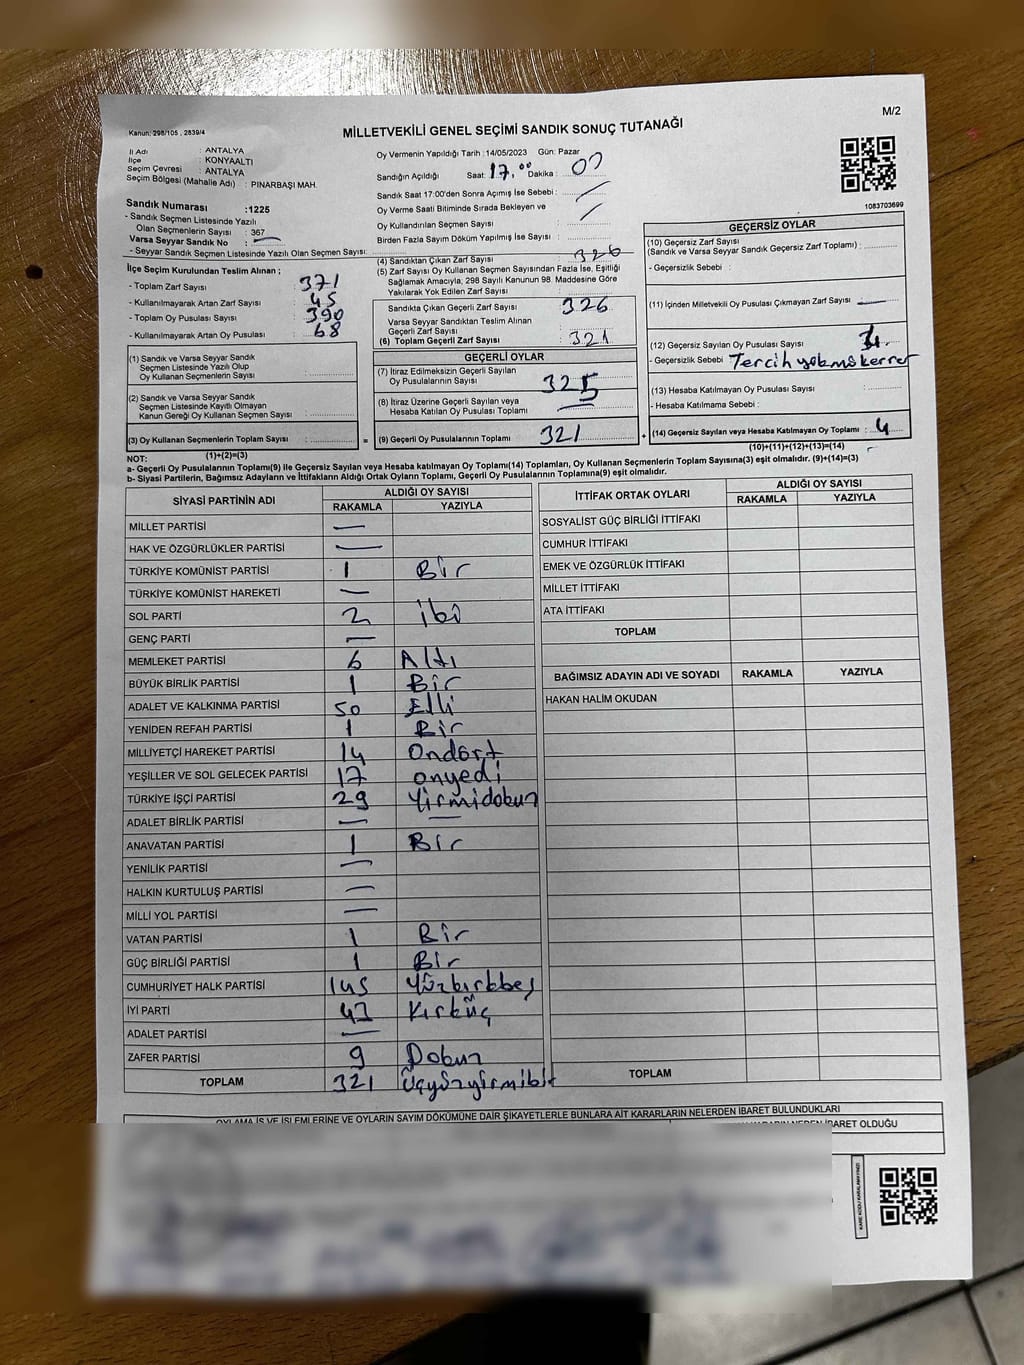 M/2
Kanun; 298/105 , 2839/4
MİLLETVEKİLİ GENEL SEÇİMİ SANDIK SONUÇ TUTANAĞI
İl Adı : ANTALYA
İlçe : KONYAALTI
Seçim Çevresi : ANTALYA
Seçim Bölgesi (Mahalle Adı) : PINARBAŞI MAH.
Sandık Numarası :1225
- Sandık Seçmen Listesinde Yazılı
Olan Seçmenlerin Sayısı : 367
Varsa Seyyar Sandık No : —
- Seyyar Sandık Seçmen Listesinde Yazılı Olan Seçmen Sayısı:
Oy Vermenin Yapıldığı Tarih :14/05/2023 Gün: Pazar
Sandığın Açıldığı Saat: 17.00 Dakika : 00
Sandık Saat 17:00'den Sonra Açılmış İse Sebebi :
Oy Verme Saati Bitiminde Sırada Bekleyen ve
Oy Kullandırılan Seçmen Sayısı :
Birden Fazla Sayım Döküm Yapılmış İse Sayısı :
1083703699
İlçe Seçim Kurulundan Teslim Alınan ;
- Toplam Zarf Sayısı : 371
- Kullanılmayarak Artan Zarf Sayısı : 45
- Toplam Oy Pusulası Sayısı : 390
- Kullanılmayarak Artan Oy Pusulası : 68
(1) Sandık ve Varsa Seyyar Sandık
Seçmen Listesinde Yazılı Olup
Oy Kullanan Seçmenlerin Sayısı :
(2) Sandık ve Varsa Seyyar Sandık
Seçmen Listesinde Kayıtlı Olmayan
Kanun Gereği Oy Kullanan Seçmen Sayısı :
(3) Oy Kullanan Seçmenlerin Toplam Sayısı :
(1)+(2)=(3)
(4) Sandıktan Çıkan Zarf Sayısı : 326
(5) Zarf Sayısı Oy Kullanan Seçmen Sayısından Fazla İse, Eşitliği
Sağlamak Amacıyla, 298 Sayılı Kanunun 98. Maddesine Göre
Yakılarak Yok Edilen Zarf Sayısı :
Sandıkta Çıkan Geçerli Zarf Sayısı : 326
Varsa Seyyar Sandıktan Teslim Alınan
Geçerli Zarf Sayısı
(6) Toplam Geçerli Zarf Sayısı : 321
GEÇERLİ OYLAR
(7) İtiraz Edilmeksizin Geçerli Sayılan
Oy Pusulalarının Sayısı : 325
(8) İtiraz Üzerine Geçerli Sayılan veya
Hesaba Katılan Oy Pusulası Toplamı : —
=
(9) Geçerli Oy Pusulalarının Toplamı : 321
+
GEÇERSİZ OYLAR
(10) Geçersiz Zarf Sayısı
(Sandık ve Varsa Seyyar Sandık Geçersiz Zarf Toplamı) :
- Geçersizlik Sebebi :
(11) İçinden Milletvekili Oy Pusulası Çıkmayan Zarf Sayısı : —
(12) Geçersiz Sayılan Oy Pusulası Sayısı :
- Geçersizlik Sebebi : Tercih yok mükerrer
(13) Hesaba Katılmayan Oy Pusulası Sayısı :
- Hesaba Katılmama Sebebi :
(14) Geçersiz Sayılan veya Hesaba Katılmayan Oy Toplamı : 4
(10)+(11)+(12)+(13)=(14)
NOT:
a- Geçerli Oy Pusulalarının Toplamı(9) ile Geçersiz Sayılan veya Hesaba katılmayan Oy Toplamı(14) Toplamları, Oy Kullanan Seçmenlerin Toplam Sayısına(3) eşit olmalıdır. (9)+(14)=(3)
b- Siyasi Partilerin, Bağımsız Adayların ve İttifakların Aldığı Ortak Oyların Toplamı, Geçerli Oy Pusulalarının Toplamına(9) eşit olmalıdır.
SİYASİ PARTİNİN ADI ALDIĞI OY SAYISI
RAKAMLA YAZIYLA
MİLLET PARTİSİ —
HAK VE ÖZGÜRLÜKLER PARTİSİ —
TÜRKİYE KOMÜNİST PARTİSİ 1 Bir
TÜRKİYE KOMÜNİST HAREKETİ —
SOL PARTİ 2 iki
GENÇ PARTİ —
MEMLEKET PARTİSİ 6 Altı
BÜYÜK BİRLİK PARTİSİ 1 Bir
ADALET VE KALKINMA PARTİSİ 50 Elli
YENİDEN REFAH PARTİSİ 1 Bir
MİLLİYETÇİ HAREKET PARTİSİ 14 Ondört
YEŞİLLER VE SOL GELECEK PARTİSİ 17 onyedi
TÜRKİYE İŞÇİ PARTİSİ 29 Yirmidokuz
ADALET BİRLİK PARTİSİ — —
ANAVATAN PARTİSİ 1 Bir
YENİLİK PARTİSİ —
HALKIN KURTULUŞ PARTİSİ —
MİLLİ YOL PARTİSİ —
VATAN PARTİSİ 1 Bir
GÜÇ BİRLİĞİ PARTİSİ 1 Bir
CUMHURİYET HALK PARTİSİ 145 Yüzkırkbeş
İYİ PARTİ 43 Kırküç
ADALET PARTİSİ —
ZAFER PARTİSİ 9 Dokuz
TOPLAM 321 Üçyüzyirmibir
İTTİFAK ORTAK OYLARI ALDIĞI OY SAYISI
RAKAMLA YAZIYLA
SOSYALİST GÜÇ BİRLİĞİ İTTİFAKI
CUMHUR İTTİFAKI
EMEK VE ÖZGÜRLÜK İTTİFAKI
MİLLET İTTİFAKI
ATA İTTİFAKI
TOPLAM
BAĞIMSIZ ADAYIN ADI VE SOYADI RAKAMLA YAZIYLA
HAKAN HALİM OKUDAN
TOPLAM
OYLAMA İŞ VE İŞLEMLERİNE VE OYLARIN SAYIM DÖKÜMÜNE DAİR ŞİKAYETLERLE BUNLARA AİT KARARLARIN NELERDEN İBARET BULUNDUKLARI
İBARET OLDUĞU